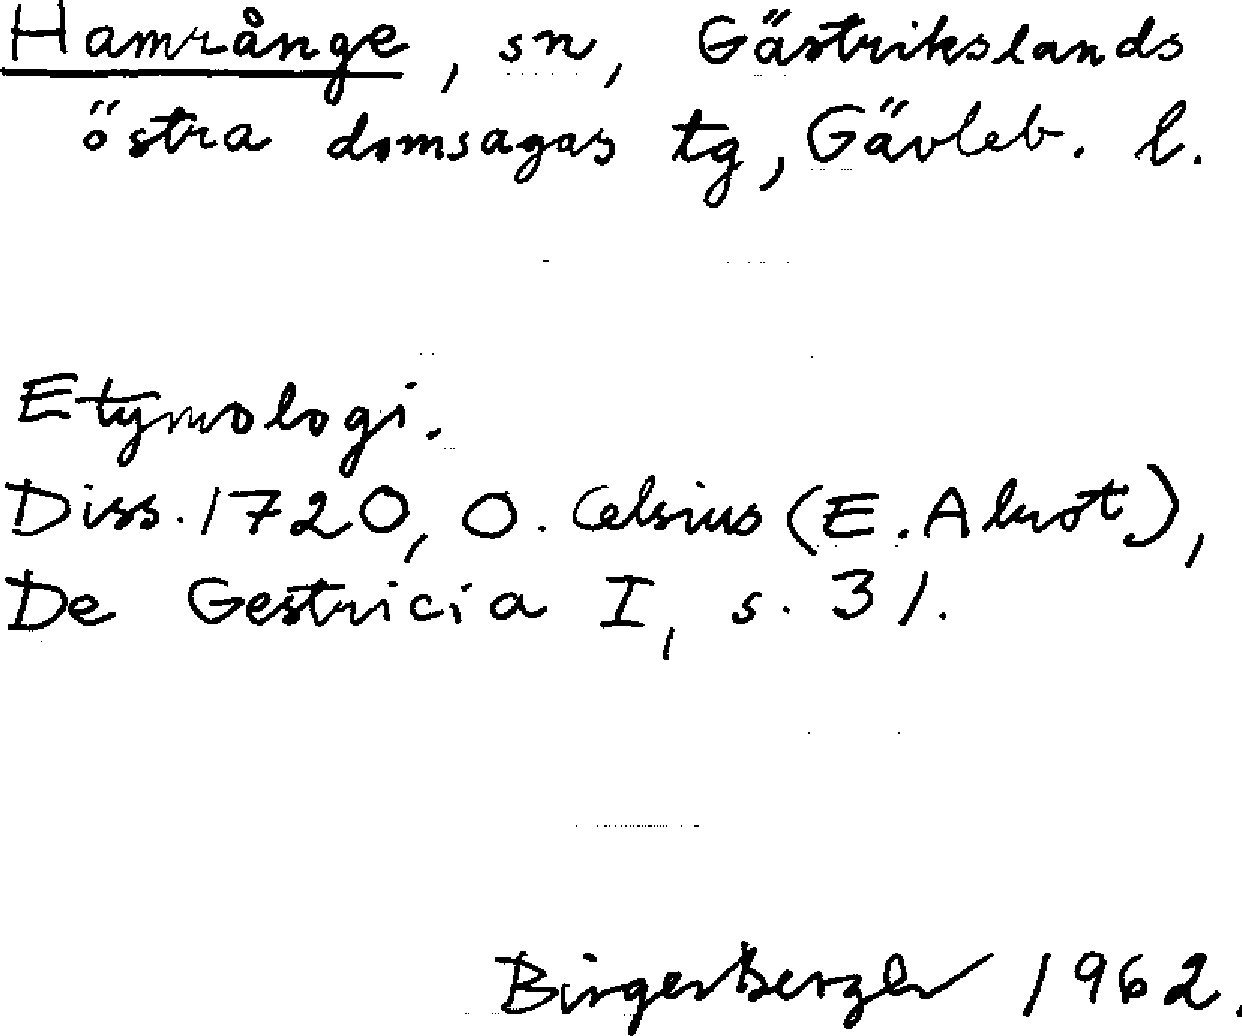 Hamrånge, sn, Gästrikslands
östra domsagas tg, Gävleb. l.
Etymologi.
Diss. 1720, O. Celsius (E. Alrot.),
De Gestricia I, s. 31.
Birger Berzler 1962.